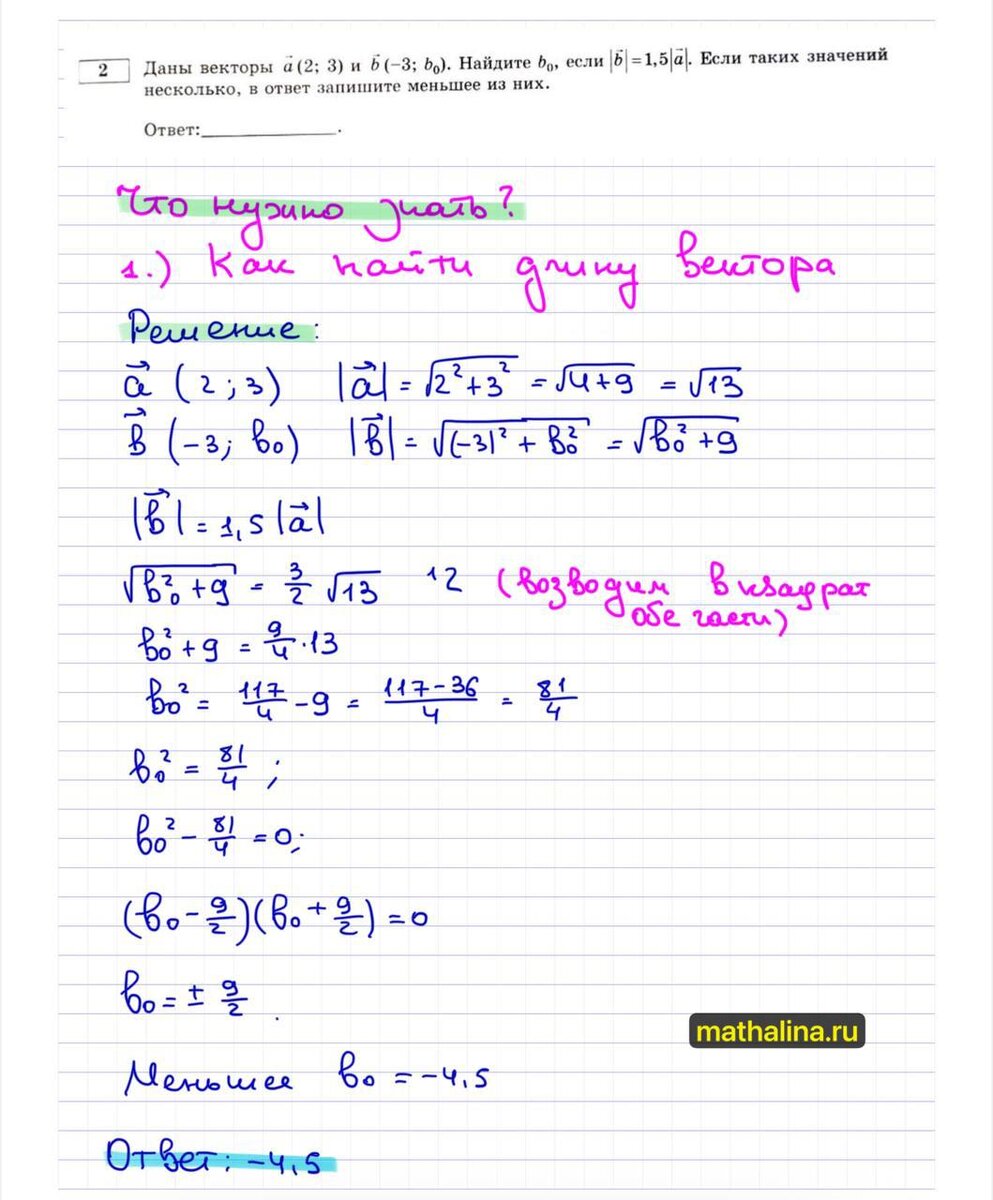 2
Даны векторы a⃗ (2; 3) и b⃗ (−3; b₀). Найдите b₀, если |b⃗| = 1,5|a⃗|. Если таких значений
несколько, в ответ запишите меньшее из них.
Ответ:_______________.
Что нужно знать?
1.) Как найти длину вектора
Решение:
a⃗ (2; 3) |a⃗| = √(2² + 3²) = √(4+9) = √13
b⃗ (−3; b₀) |b⃗| = √((−3)² + b₀²) = √(b₀² + 9)
|b⃗| = 1,5 |a⃗|
√(b₀² + 9) = 3/2 √13 ↑2 (возводим в квадрат
обе части)
b₀² + 9 = 9/4 · 13
b₀² = 117/4 − 9 = (117−36)/4 = 81/4
b₀² = 81/4 ;
b₀² − 81/4 = 0;
(b₀ − 9/2)(b₀ + 9/2) = 0
b₀ = ± 9/2 .
mathalina.ru
Меньшее b₀ = −4,5
Ответ: −4,5